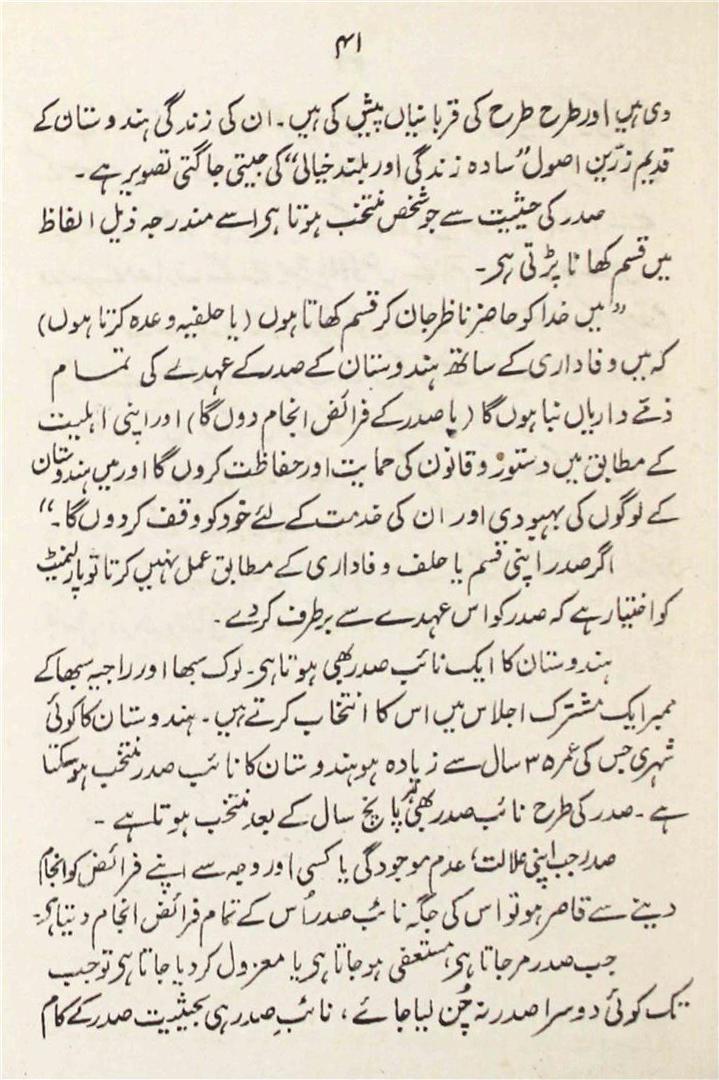 ۴۱
دی ہیں اور طرح طرح کی قربانیاں پیش کی ہیں۔ ان کی زندگی ہندوستان کے
قدیم زرّین اصول ”سادہ زندگی اور بلند خیالی“ کی جیتی جاگتی تصویر ہے۔
صدر کی حیثیت سے جو شخص منتخب ہوتا ہی اسے مندرجہ ذیل الفاظ
میں قسم کھانا پڑتی ہی۔
”میں خدا کو حاضر ناظر جان کر قسم کھاتا ہوں (یا حلفیہ وعدہ کرتا ہوں)
کہ میں وفاداری کے ساتھ ہندوستان کے صدر کے عہدے کی تمام
ذمّے داریاں نباہوں گا (یا صدر کے فرائض انجام دوں گا) اور اپنی اہلیت
کے مطابق میں دستور و قانون کی حمایت اور حفاظت کروں گا اور میں ہندوستان
کے لوگوں کی بہبودی اور ان کی خدمت کے لئے خود کو وقف کر دوں گا۔“
اگر صدر اپنی قسم یا حلف وفاداری کے مطابق عمل نہیں کرتا تو پارلیمنٹ
کو اختیار ہے کہ صدر کو اس عہدے سے برطرف کر دے۔
ہندوستان کا ایک نائب صدر بھی ہوتا ہی۔ لوک سبھا اور راجیہ سبھا کے
ممبر ایک مشترک اجلاس میں اس کا انتخاب کرتے ہیں۔ ہندوستان کا کوئی
شہری جس کی عمر ۳۵ سال سے زیادہ ہو ہندوستان کا نائب صدر منتخب ہو سکتا
ہے۔ صدر کی طرح نائب صدر بھی ہر پانچ سال کے بعد منتخب ہوتا ہے۔
صدر جب اپنی علالت، عدم موجودگی یا کسی اور وجہ سے اپنے فرائض کو انجام
دینے سے قاصر ہو تو اس کی جگہ نائب صدر اُس کے تمام فرائض انجام دیتا ہی۔
جب صدر مر جاتا ہی، مستعفی ہو جاتا ہی یا معزول کر دیا جاتا ہی تو جب
تک کوئی دوسرا صدر نہ چُن لیا جائے، نائبِ صدر ہی بحیثیت صدر کے کام